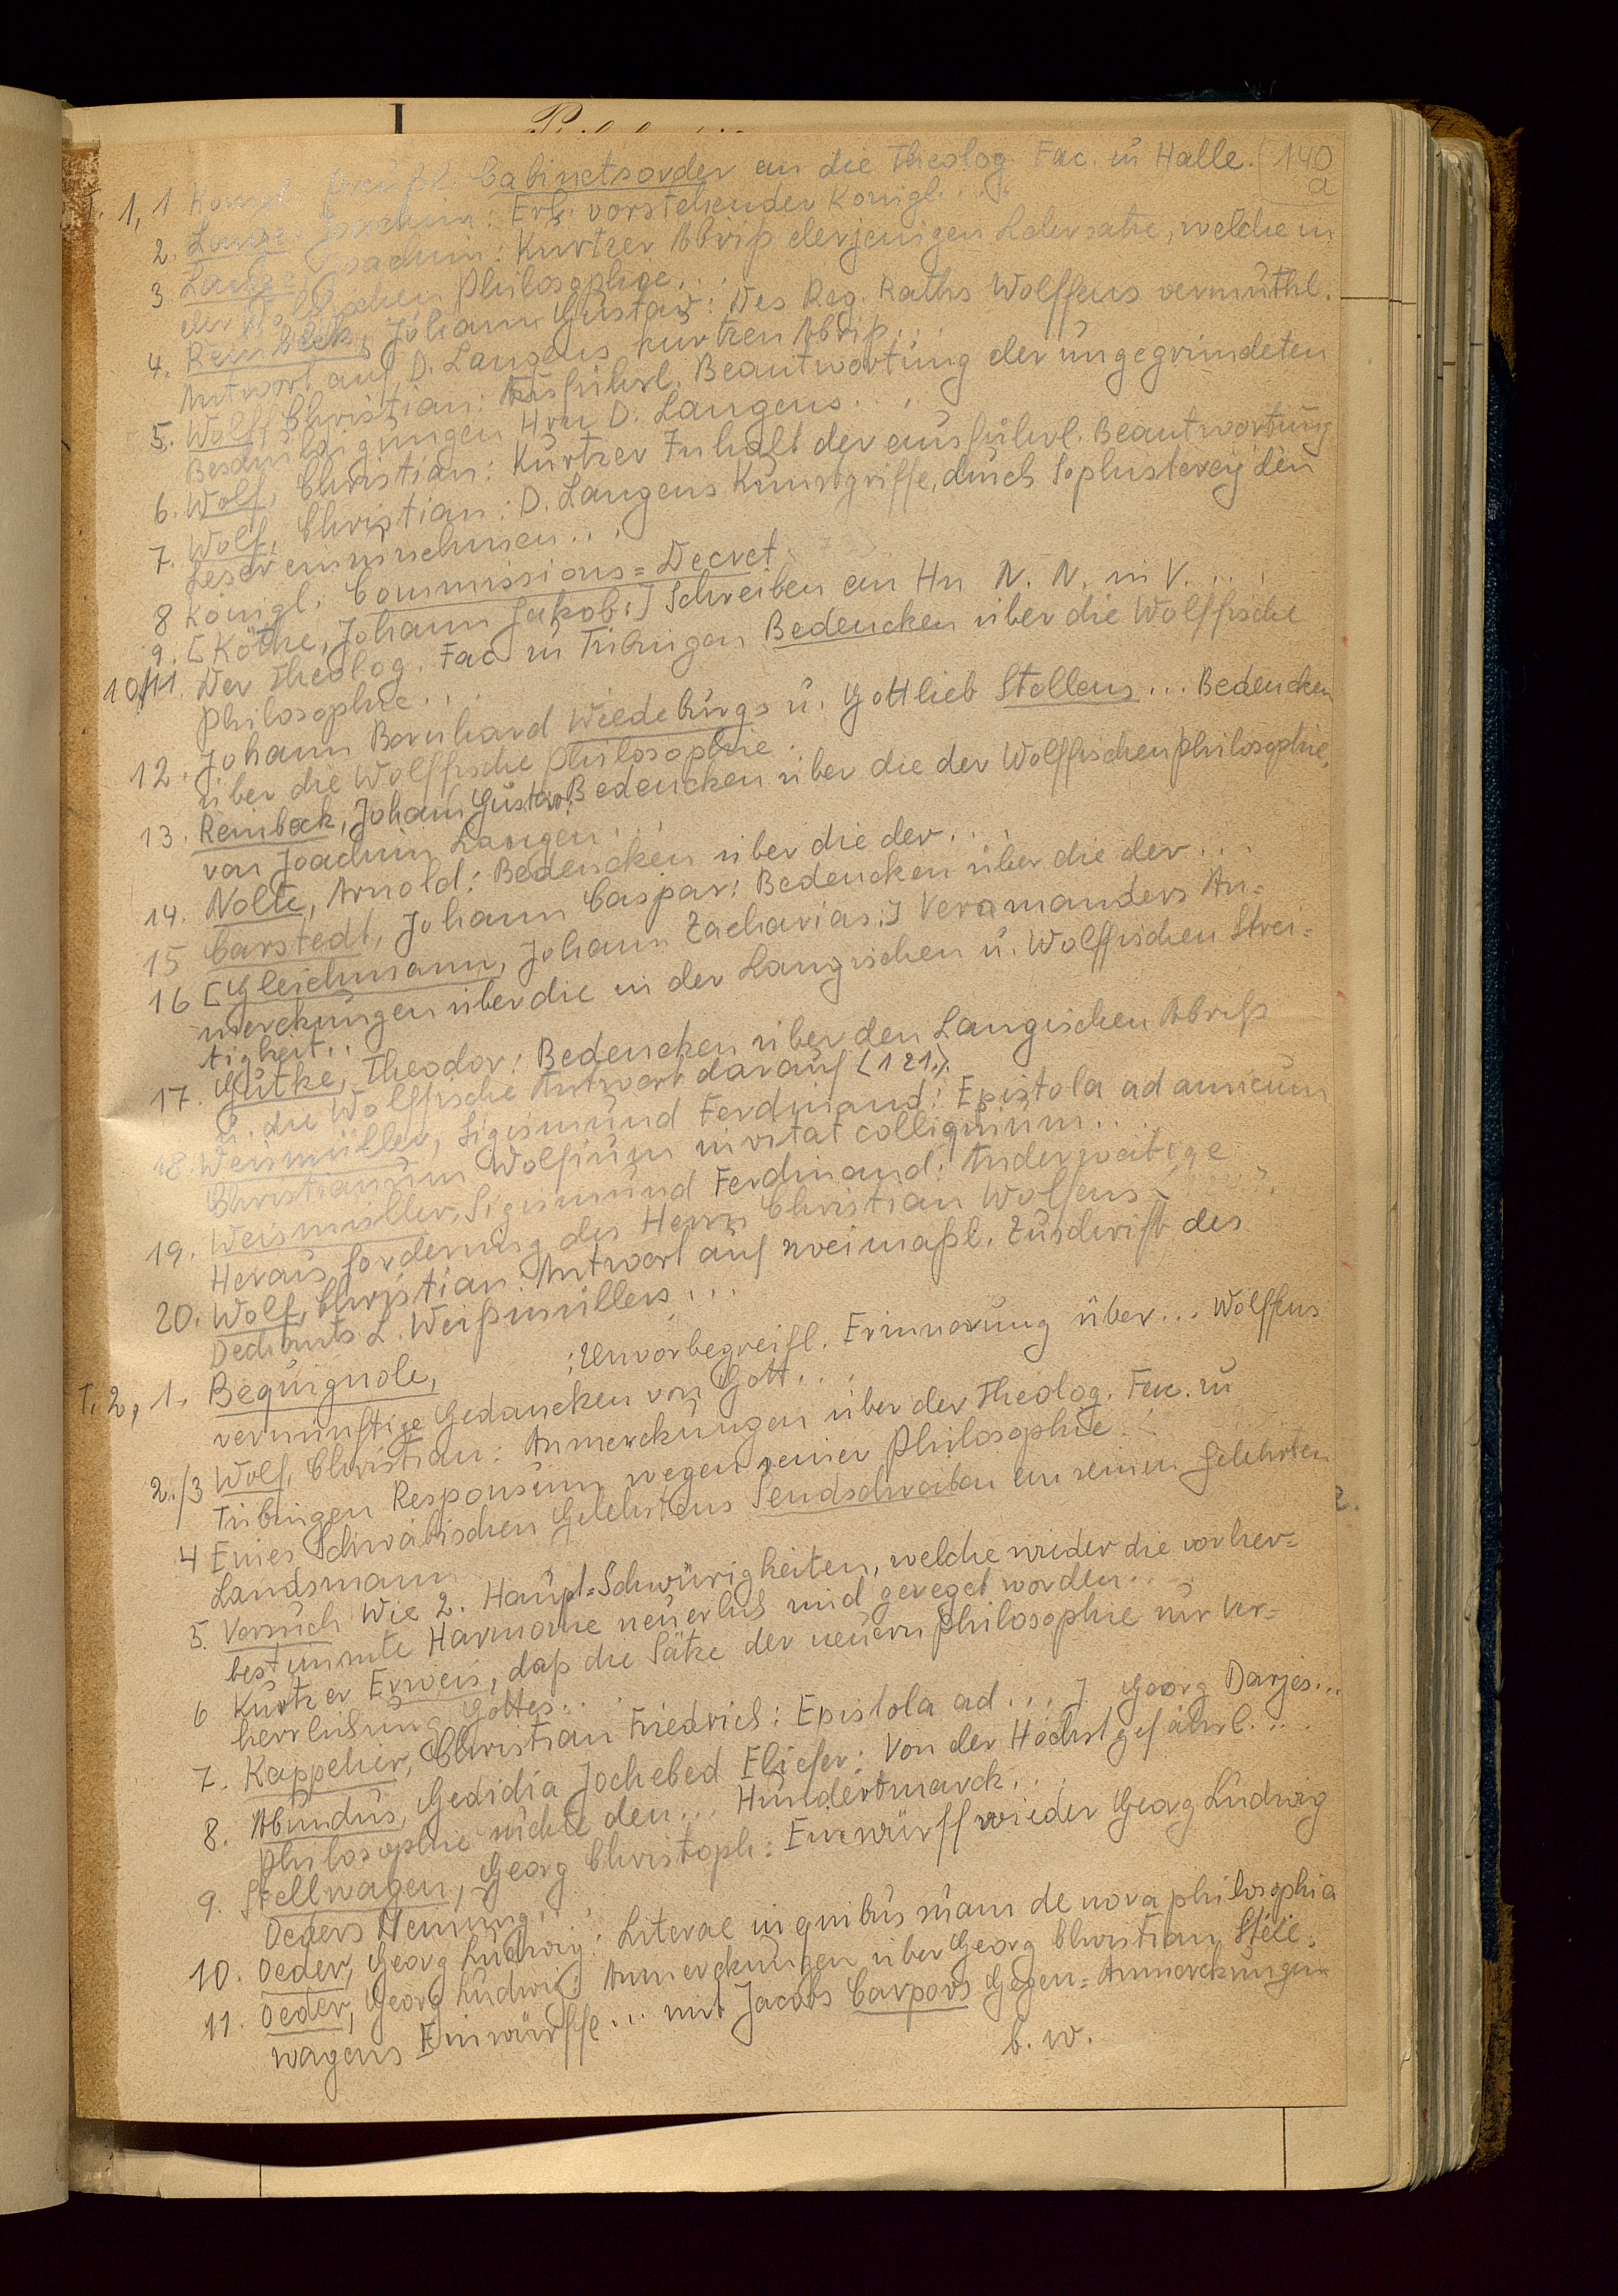 140
a
T. 1, 1 Königl. Preußl. Cabinetsorder an die Theolog. Fac. zu Halle.
2. Lange, Joachim: Erl. vorstehender Königl. ...
3 Lange, Joachim: Kurtzer Abriß derjenigen Lehrsatze, welche in
der Wolffischen Philosophie...
4. Reinbeck, Johann Gustav: Des Reg. Raths Wolffens vermuthl.
Antwort auf D. Langens kurtzen Abriß...
5. Wolf, Christian: Ausführl. Beantwortung der ungegründeten
Beschuldigungen Hrn D. Langens...
6. Wolf, Christian: Kurtzer Inhalt der ausführl. Beantwortung
7. Wolf, Christian: D. Langens Kunstgriffe, durch Sophisterey den
Leser einzunehmen...
8 Königl. Commissions=Decret
9. [Köthe, Johann Jakob:] Schreiben an Hn N. N. in V. ...
10/11. Der Theolog. Fac. zu Tübingen Bedencken über die Wolffische
Philosophie...
12. Johann Bernhard Wiedeburgs u. Gottlieb Stollens... Bedencken
über die Wolffische Philosophie.
13. Reinbeck, Johann Gustav: Bedencken über die der Wolffischen Philosophie,
von Joachim Langen...
14. Nolte, Arnold: Bedencken über die der...
15 Carstedt, Johann Caspar: Bedencken über die der...
16 [Gleichmann, Johann Zacharias:] Veramanders An=
merckungen über die in der Langischen u. Wolffischen Strei=
tigkeit..
17. Gütke, Theodor: Bedencken über den Langischen Abriß
u. die Wolffische Antwort darauf (121).
18. Weismüller, Sigismund Ferdinand: Epistola ad amicum
Christianum Wolfium invitat colliquium...
19. Weismüller, Sigismund Ferdinand: Anderweitige
Herausforderung des Herrn Christian Wolfens
20. Wolf, Christian: Antwort auf zweimaßl. Zuschrift des
Dechants L. Weißmüllers...
T. 2, 1. Bequignole, : Unvorbegreifl. Erinnerung über... Wolffens
vernünftige Gedancken von Gott...
2./3 Wolf, Christian: Anmerckungen über der Theolog. Fac. zu
Tübingen Responsum wegen seiner Philosophie...
4 Eines Schwäbischen Gelehrtens Sendschreiben an seinen gelehrten
Landsmann
5. Versuch Wie 2. Haupt=Schwürigkeiten, welche wieder die vorher=
bestimmte Harmonie neuerlich sind gereget worden...
6 Kurtzer Erweis, daß die Sätze der neuern Philosophie zur Ver=
herrlichung Gottes...
7. Kappelier, Christian Friedrich: Epistola ad... J. Georg Darjes...
8. Abundus, Gedidia Jochebed Elieser: Von der Höchstgefährl....
Philosophie suchte den... Hundertmarck...
9. Stellwagen, Georg Christoph: Einwürff wieder Georg Ludwig
Oeders Meinung...
10. Oeder, Georg Ludwig: Literae in quibus suam de nova philosophia
11. Oeder, Georg Ludwig: Anmerckungen über Georg Christian Stelle.
wagens Einwürffe... mit Jacobs Carpovs Gegen=Anmerckungen
b. w.